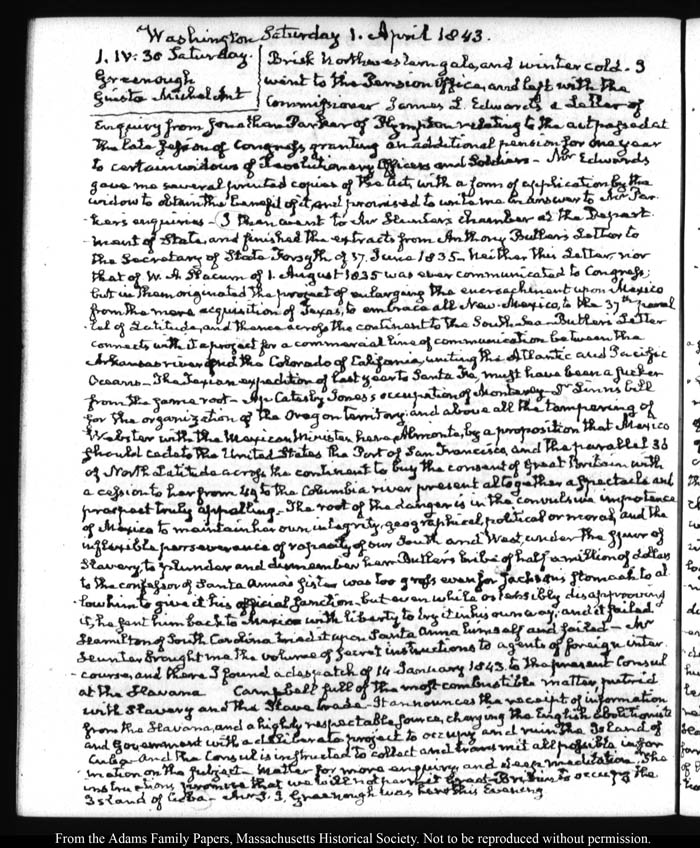 Washington Saturday 1. April 1843.
1. IV: 30 Saturday.
Greenough
Giusta Michel Ant
Brisk Northwestern gale, and winter cold. I
went to the Pension Office, and left with the
Commissioner James L. Edwards a Letter of
Enquiry from Jonathan Parker of Plympton relating to the act passed at
the late Session of Congress granting an additional pension for one year
to certain widows of Revolutionary Officers and Soldiers— Mr Edwards
gave me several printed copies of the Act, with a form of application by the
widow to obtain the benefit of it, and promised to write me in answer to Mr Par-
kers enquiries— I then went to Mr Hunter's chamber at the Depart-
ment of State, and finished the extracts from Anthony Butler's Letter to
the Secretary of State Forsyth of 17. June 1835. Neither this Letter, nor
that of W. A. Slacum of 1. August 1835 was ever communicated to Congress;
but in them originated the project of enlarging the encroachment upon Mexico
from the mere acquisition of Texas, to embrace all New-Mexico, to the 37th paral-
lel of Latitude, and thence across the continent to the South Sea— Butler's Letter
connects with it a project for a commercial line of communication between the
Arkansas river and the Colorado of California, uniting the Atlantic and Pacific
Oceans— The Texian expedition of last year to Santa Fe, must have been a sucker
from the same root— Ap Catesby Jones's occupation of Monterey— Dr Linn's bill
for the organization of the Oregon territory, and above all the tampering of
Webster with the Mexican Minister here, Almonte, by a proposition that Mexico
should cede to the United States the Port of San Francisco, and the parallel 36
of North Latitude across the continent to buy the consent of Great Britain with
a cession to her from 49 to the Columbia river present altogether a spectacle and
prospect truly appalling— The root of the danger is in the convulsive impotence
of Mexico to maintain her own integrity, geographical, political or moral, and the
inflexible perseverance of rapacity of our South and West, under the spur of
Slavery, to plunder and dismember her. Butler's bribe of half a million of dollars
to the confessor of Santa Anna's sister was too gross even for Jackson's stomach to al-
low him to give it his official sanction, but even while ostensibly disapproving
it, he sent him back to Mexico with liberty to try it in his own way; and it failed
Hamilton of South Carolina tried it upon Santa Anna himself and failed— Mr
Hunter brought me the volume of secret instructions to agents of foreign inter-
course, and there I found a despatch of 14 January 1843. to the present Consul
at the Havana Campbell full of the most combustible matter, putrid
with Slavery and the Slave trade— It announces the receipt of information
from the Havana, and a highly respectable source, charging the English abolitionists
and Government with a deliberate project to occupy and ruin the Island of
Cuba— And the Consul is instructed to collect and transmit all possible infor-
mation on the subject— Matter for more enquiry, and deep meditation. The
instructions promise that we will not permit Great-Britain to occupy the
Island of Cuba— Mr J. J. Greenough was here this Evening
From the Adams Family Papers, Massachusetts Historical Society. Not to be reproduced without permission.